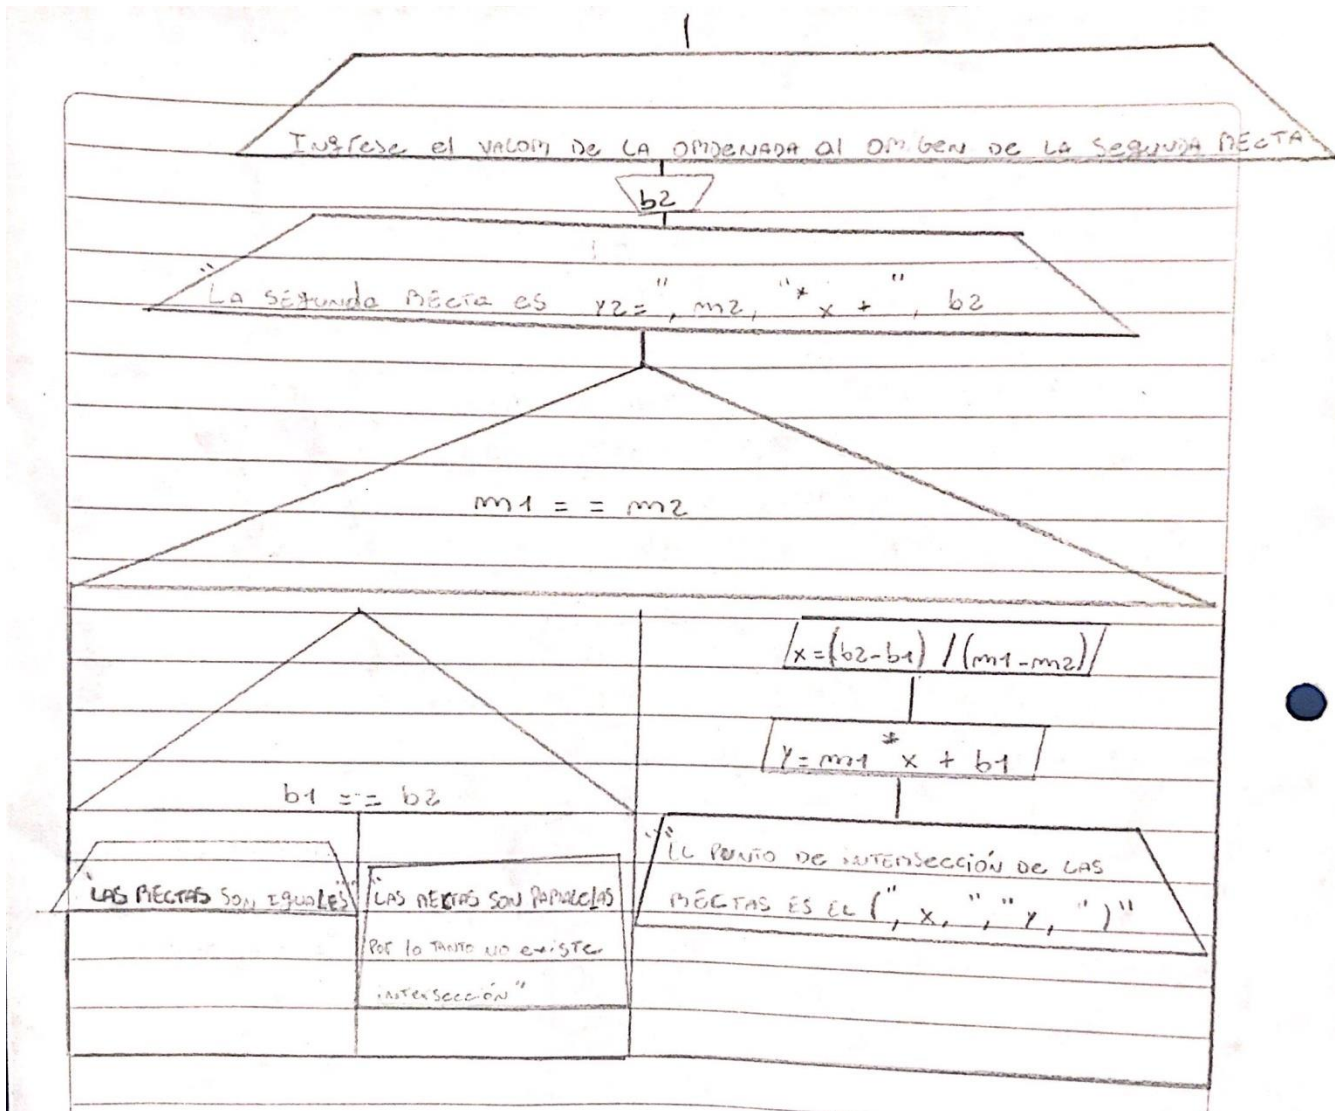 Ingrese el VALOR DE LA ORDENADA al ORIGEN DE LA SEGUNDA RECTA
b2
"La SEGUNDA RECTA es Y2=", m2, "* x + ", b2
m1 = = m2
b1 == b2
x=(b2-b1) / (m1-m2)
Y = m1 * x + b1
"LAS RECTAS SON IGUALES"
"LAS RECTAS SON PARALELAS
POR lo TANTO NO existe
intersección"
"EL PUNTO DE INTERSECCIÓN DE LAS
RECTAS ES EL (", x, ",", Y, ")"